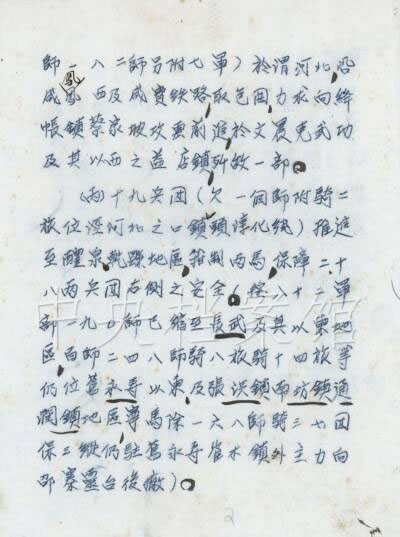 師一八二師另附七軍）於渭河北沿
咸鳳西及咸寶鉄路取包囲力求向絳
帳鎮蔡家坡坎亜前進於文晨克武功
及其以西之益店鎮歼敵一部
（丙）十九兵团（欠一個師附騎二
旅位涇河北之口鎮頭淳化线）推進
至醴泉乾縣地區箝制两馬保障二十
八两兵团右側之安全（按八十二軍
部一九〇師已縮至長武及其以東地
區百師二四八師騎八旅騎十四旅等
仍位舊永寿以東及張洪鎮 坊鎮通
潤鎮地區寧馬除一六八師騎三七团
保二縱仍駐舊永寿崔木鎮外主力向
邵寨靈台後撤）
中央档案館
2